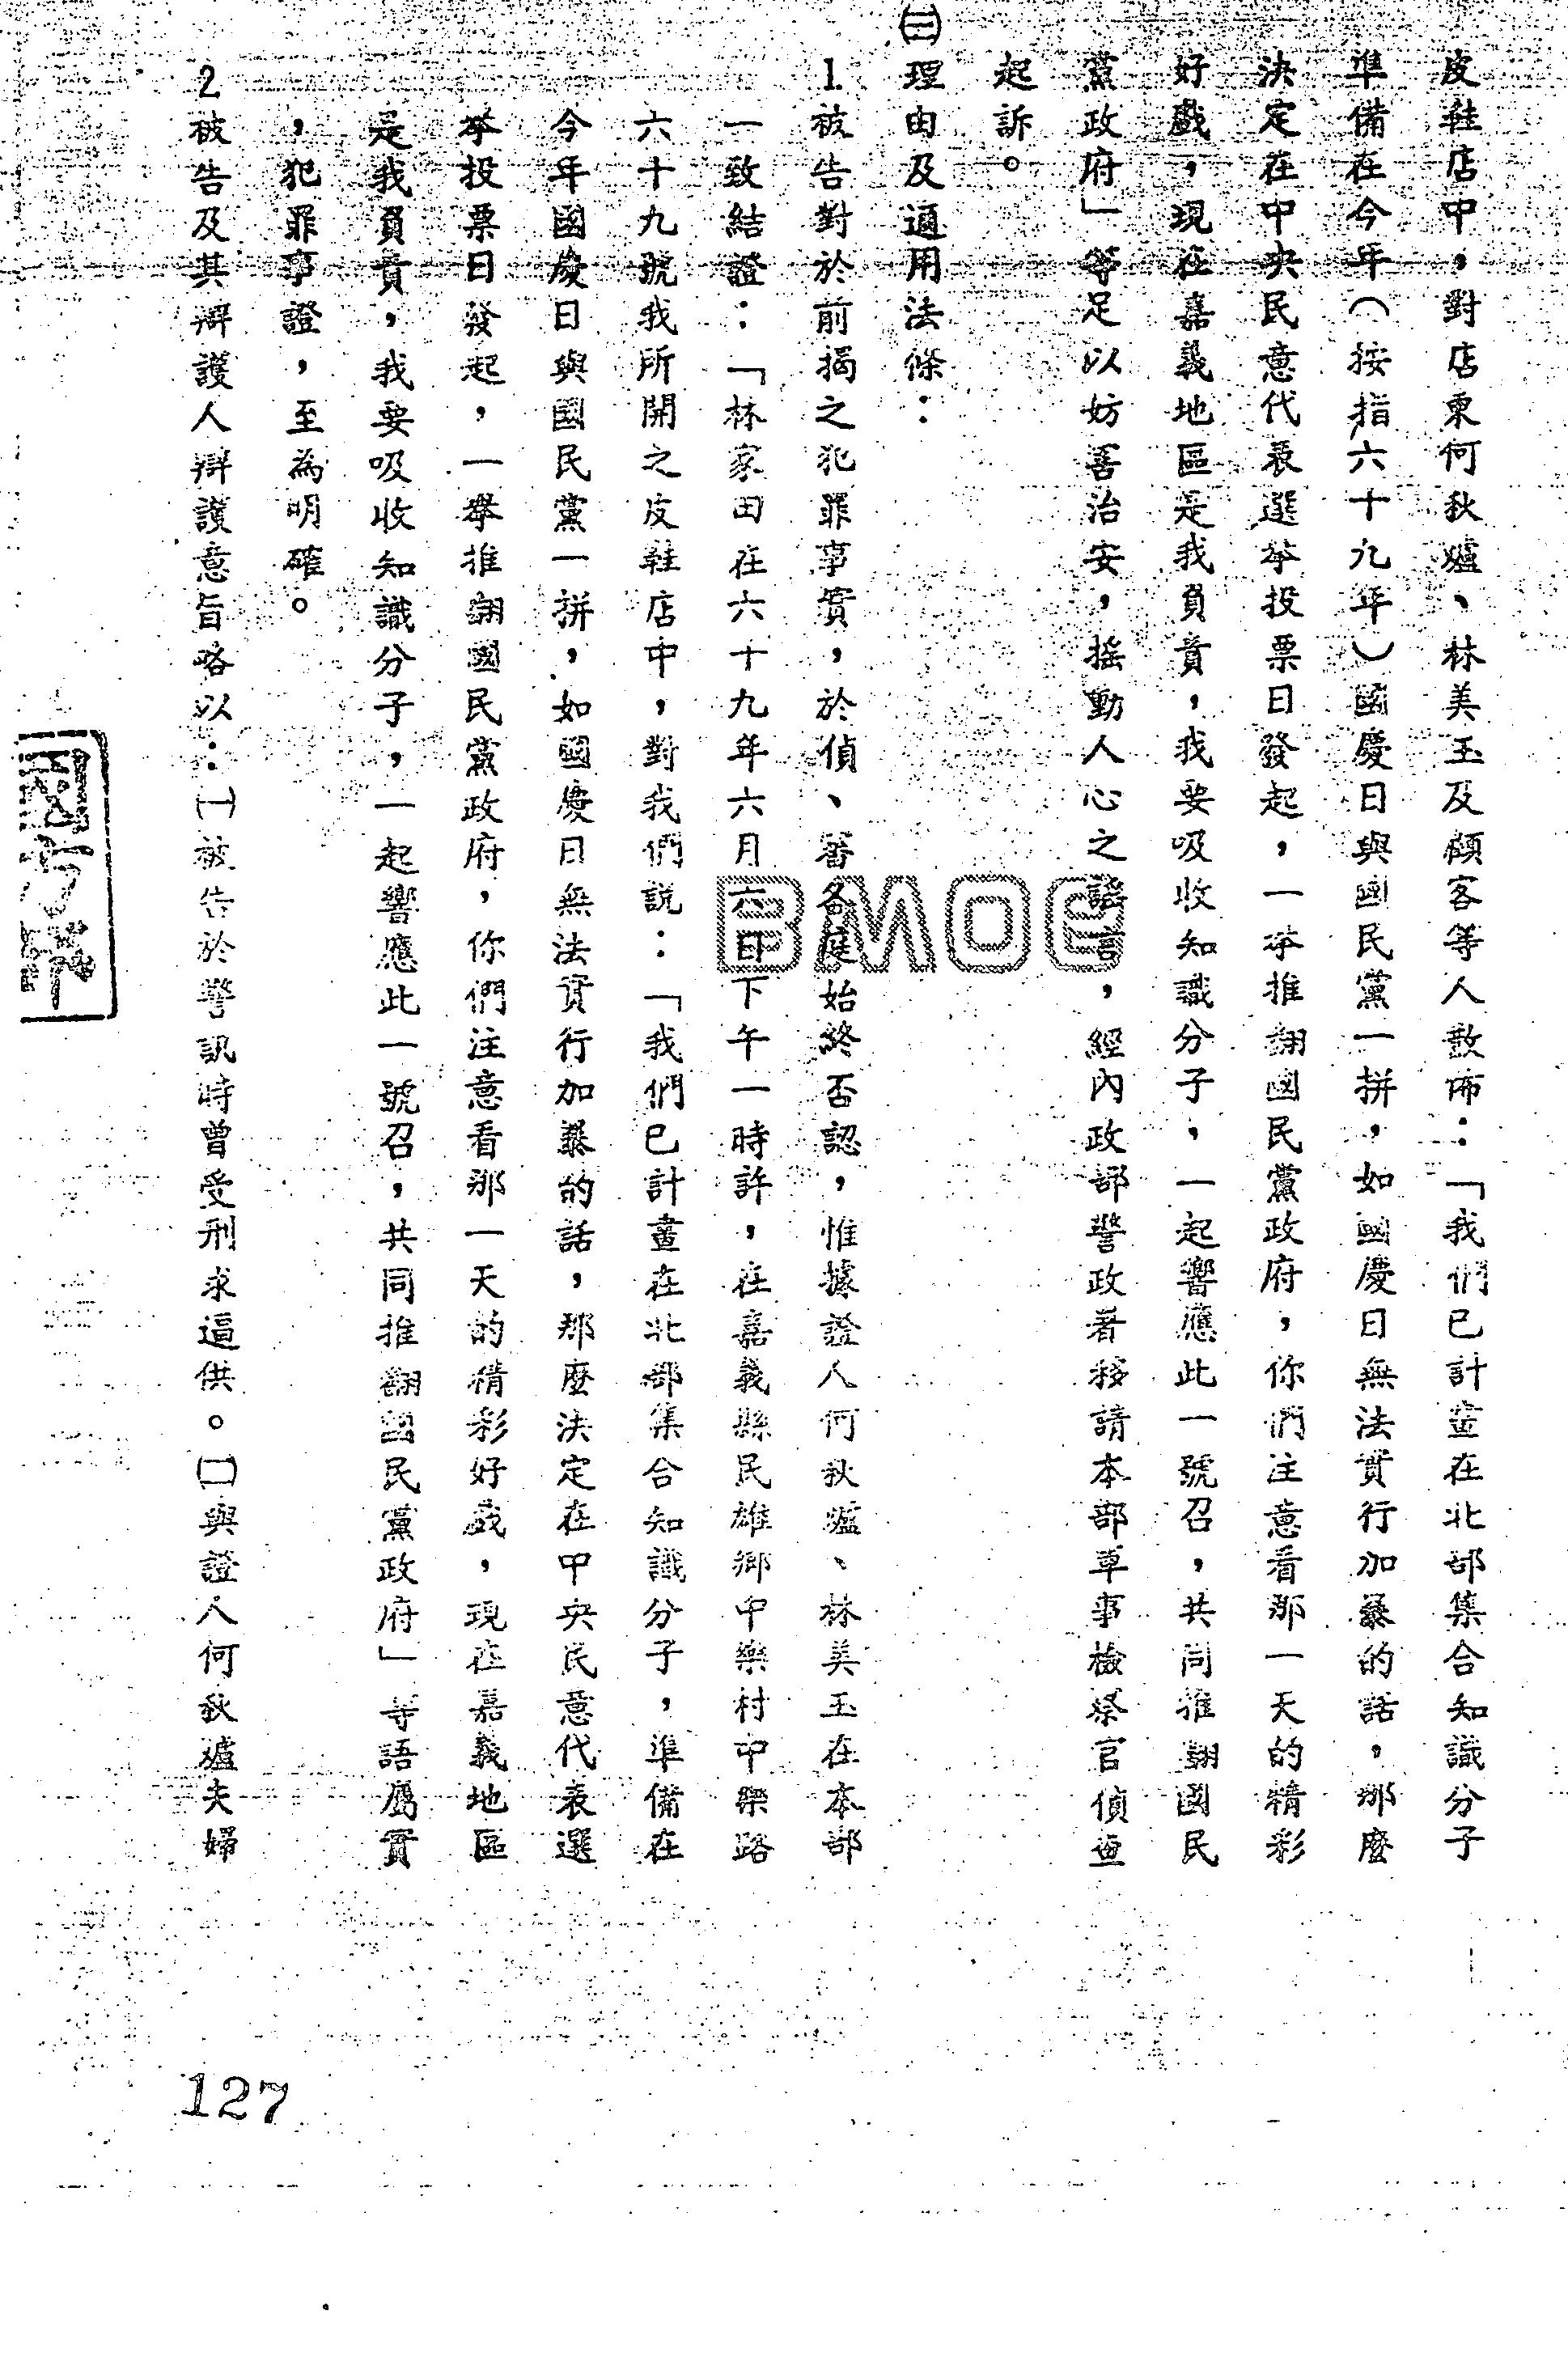 皮鞋店中，對店東何秋爐、林美玉及顧客等人散佈：「我們已計畫在北部集合知識分子
準備在今年（按指六十九年）國慶日與國民黨一拼，如國慶日無法實行加暴的話，那麼
決定在中央民意代表選举投票日發起，一举推翻國民黨政府，你們注意看那一天的精彩
好戲，現在嘉義地區是我負責，我要吸收知識分子，一起響應此一號召，共同推翻國民
黨政府」等足以妨害治安，搖動人心之謠言，經內政部警政署移請本部軍事檢察官偵查
起訴。
㈢理由及適用法條：
1被告對於前揭之犯罪事實，於偵、審各庭始終否認，惟據證人何秋爐、林美玉在本部
一致結證：「林家田在六十九年六月六日下午一時許，在嘉義縣民雄鄉中樂村中樂路
六十九號我所開之皮鞋店中，對我們說：「我們已計畫在北部集合知識分子，準備在
今年國慶日與國民黨一拼，如國慶日無法實行加暴的話，那麼決定在中央民意代表選
举投票日發起，一举推翻國民黨政府，你們注意看那一天的精彩好戲，現在嘉義地區
是我負責，我要吸收知識分子，一起響應此一號召，共同推翻國民黨政府」等語屬實
，犯罪事證，至為明確。
2被告及其辯護人辯護意旨略以：㈠被告於警訊時曾受刑求逼供。㈡與證人何秋爐夫婦
127